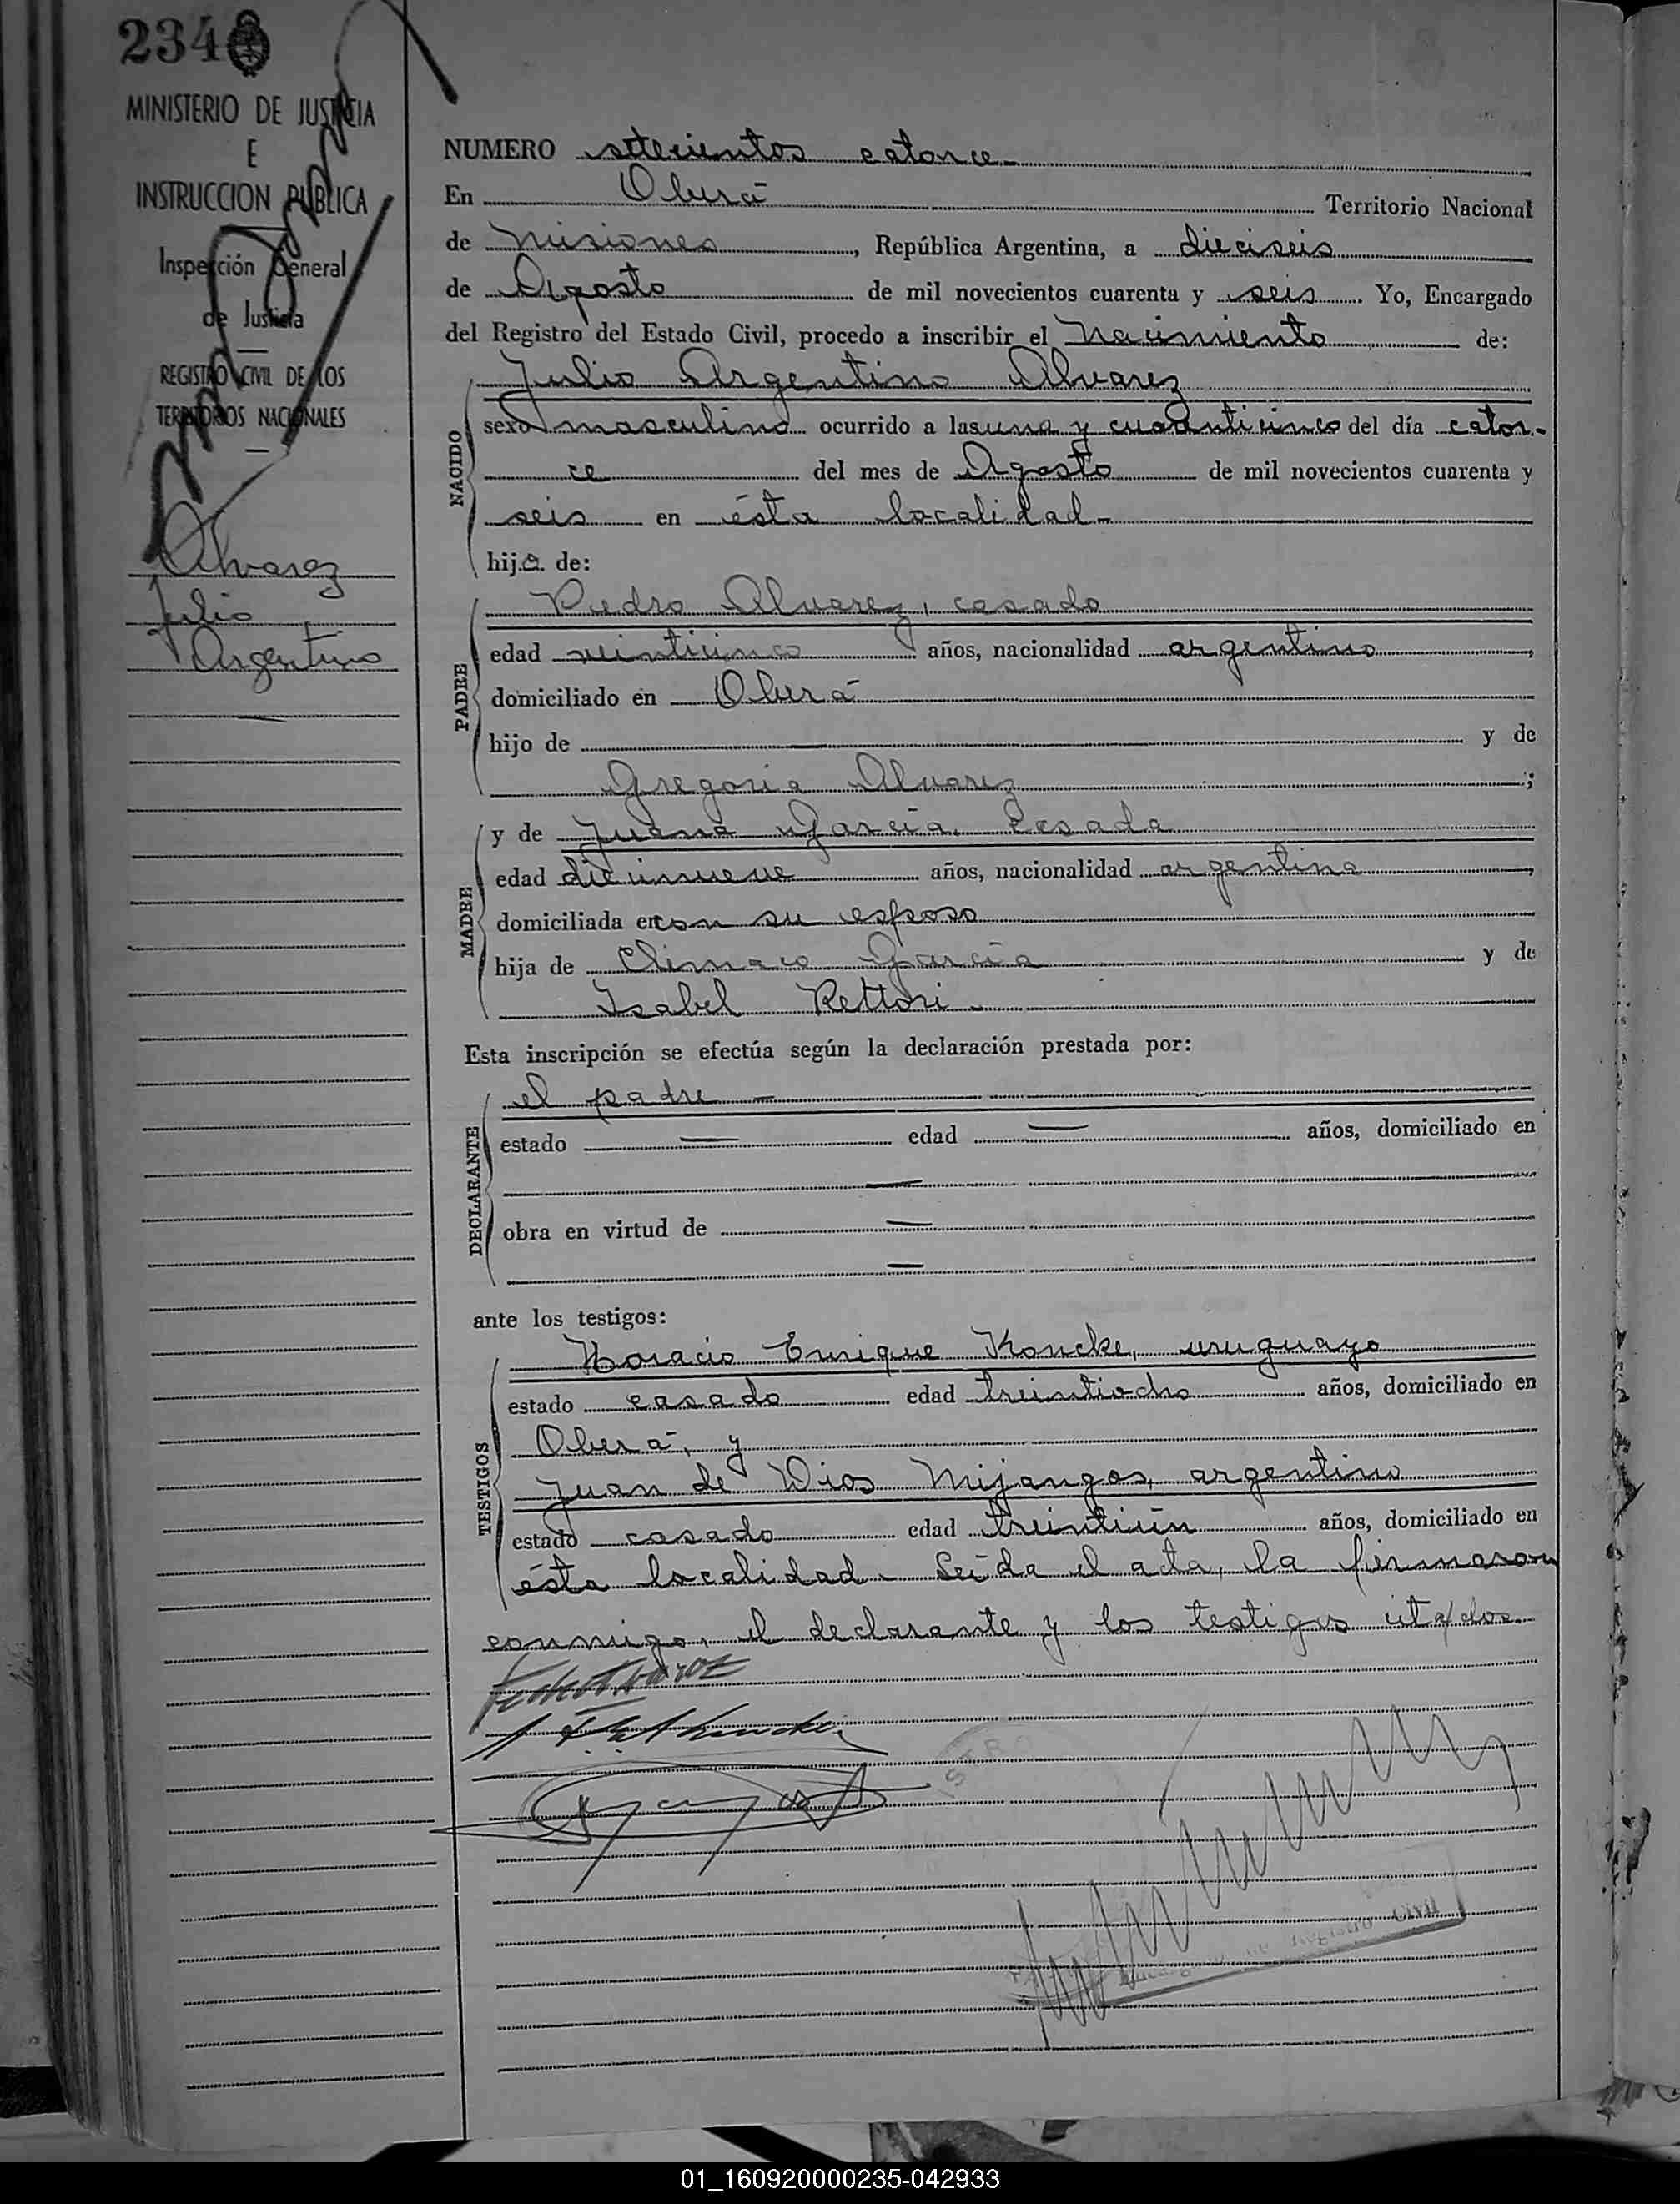 234
MINISTERIO DE JUSTICIA
E
INSTRUCCION PUBLICA
Inspección General
de Justicia
REGISTRO CIVIL DE LOS
TERRITORIOS NACIONALES
Alvarez
Julio
Argentino
NUMERO setecientos catorce-
En Oberá Territorio Nacional
de Misiones, República Argentina, a dieciseis
de Agosto de mil novecientos cuarenta y seis. Yo, Encargado
del Registro del Estado Civil, procedo a inscribir el Nacimiento de:
Julio Argentino Alvarez
NACIDO
sexo masculino ocurrido a las una y cuarenticinco del día cator-
ce del mes de Agosto de mil novecientos cuarenta y
seis en ésta localidad-
hijo. de:
PADRE
Pedro Alvarez, casado
edad veinticinco años, nacionalidad argentino,
domiciliado en Oberá
hijo de y de
Gregoria Alvarez;
MADRE
y de Juana García, Casada
edad diecinueve años, nacionalidad argentina,
domiciliada en con su esposo
hija de Climaco García y de
Isabel Rettori-
Esta inscripción se efectúa según la declaración prestada por:
DECLARANTE
el padre -
estado — edad — años, domiciliado en
—
obra en virtud de —
—
ante los testigos:
TESTIGOS
Horacio Enrique Koncke, uruguayo
estado casado edad treintiocho años, domiciliado en
Oberá, y
Juan de Dios Mijangos, argentino
estado casado edad treintiún años, domiciliado en
ésta localidad. Leída el acta, la firmaron
conmigo, el declarante y los testigos citados.
Registro Civil
01_160920000235-042933